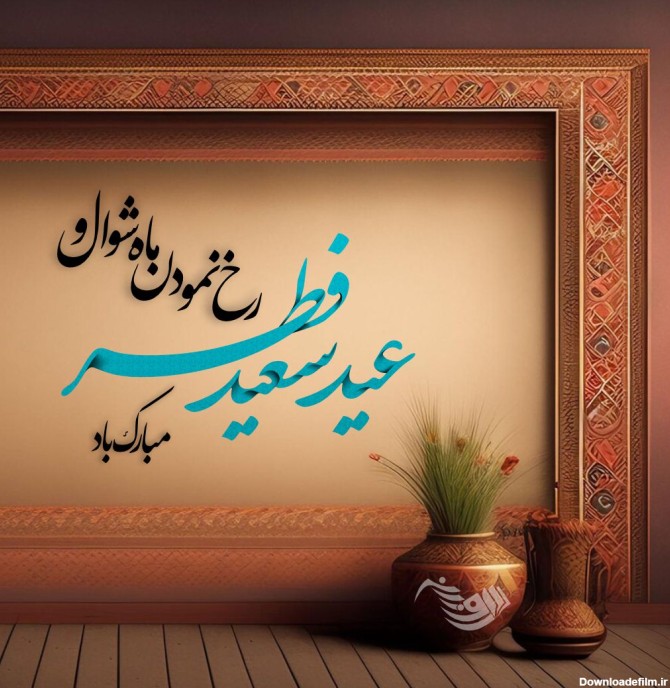 رخ نمودن ماه شوال و
عید سعید فطر
مبارک باد
Downloadefilm.ir